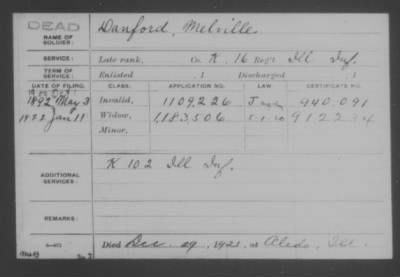 DEAD
NAME OF SOLDIER: Danford, Melville
SERVICE: Late rank, Co. K, 16 Reg't Ill Inf.
TERM OF SERVICE: Enlisted , 1 Discharged , 1
DATE OF FILING. CLASS. APPLICATION NO. LAW CERTIFICATE NO.
1892 May 3 Invalid, 1109,226 940,091
1922 Jan 11 Widow, 1,183,506
Minor,
ADDITIONAL SERVICES: K 102 Ill Inf.
REMARKS:
Died Dec. 29, 1921, at Aledo, Ill.